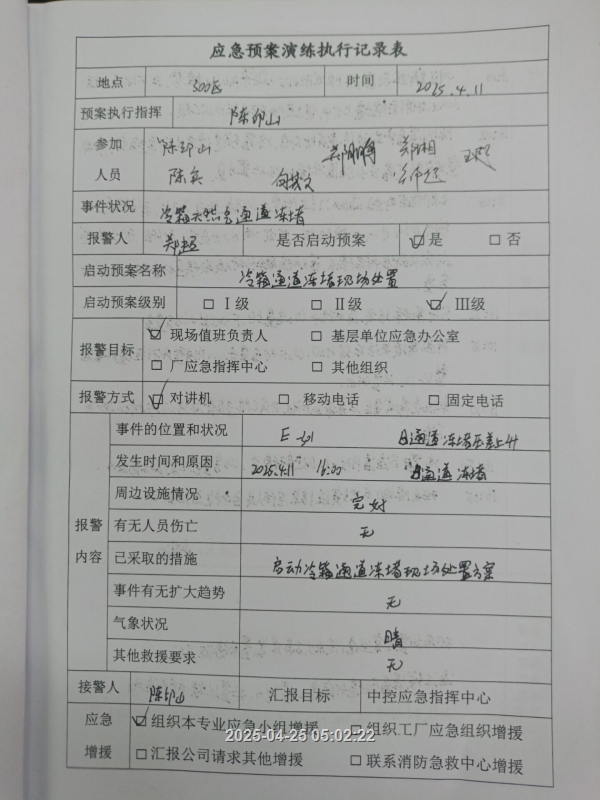 应急预案演练执行记录表
地点 300区 时间 2025.4.11
预案执行指挥 陈印山
参加人员 陈印山 郑相
陈兵
事件状况 冷箱天然气通道冻堵
报警人 郑超 是否启动预案 ☑是 □否
启动预案名称 冷箱通道冻堵现场处置
启动预案级别 □Ⅰ级 □Ⅱ级 ☑Ⅲ级
报警目标 ☑现场值班负责人 □基层单位应急办公室
□厂应急指挥中心 □其他组织
报警方式 ☑对讲机 □移动电话 □固定电话
报警内容
事件的位置和状况 E-301 B通道冻堵压差上升
发生时间和原因 2025.4.11 16:00 B通道冻堵
周边设施情况 完好
有无人员伤亡 无
已采取的措施 启动冷箱通道冻堵现场处置方案
事件有无扩大趋势 无
气象状况 晴
其他救援要求 无
接警人 陈印山 汇报目标 中控应急指挥中心
应急增援 ☑组织本专业应急小组增援 □组织工厂应急组织增援
□汇报公司请求其他增援 □联系消防急救中心增援
2025-04-25 05:02:22